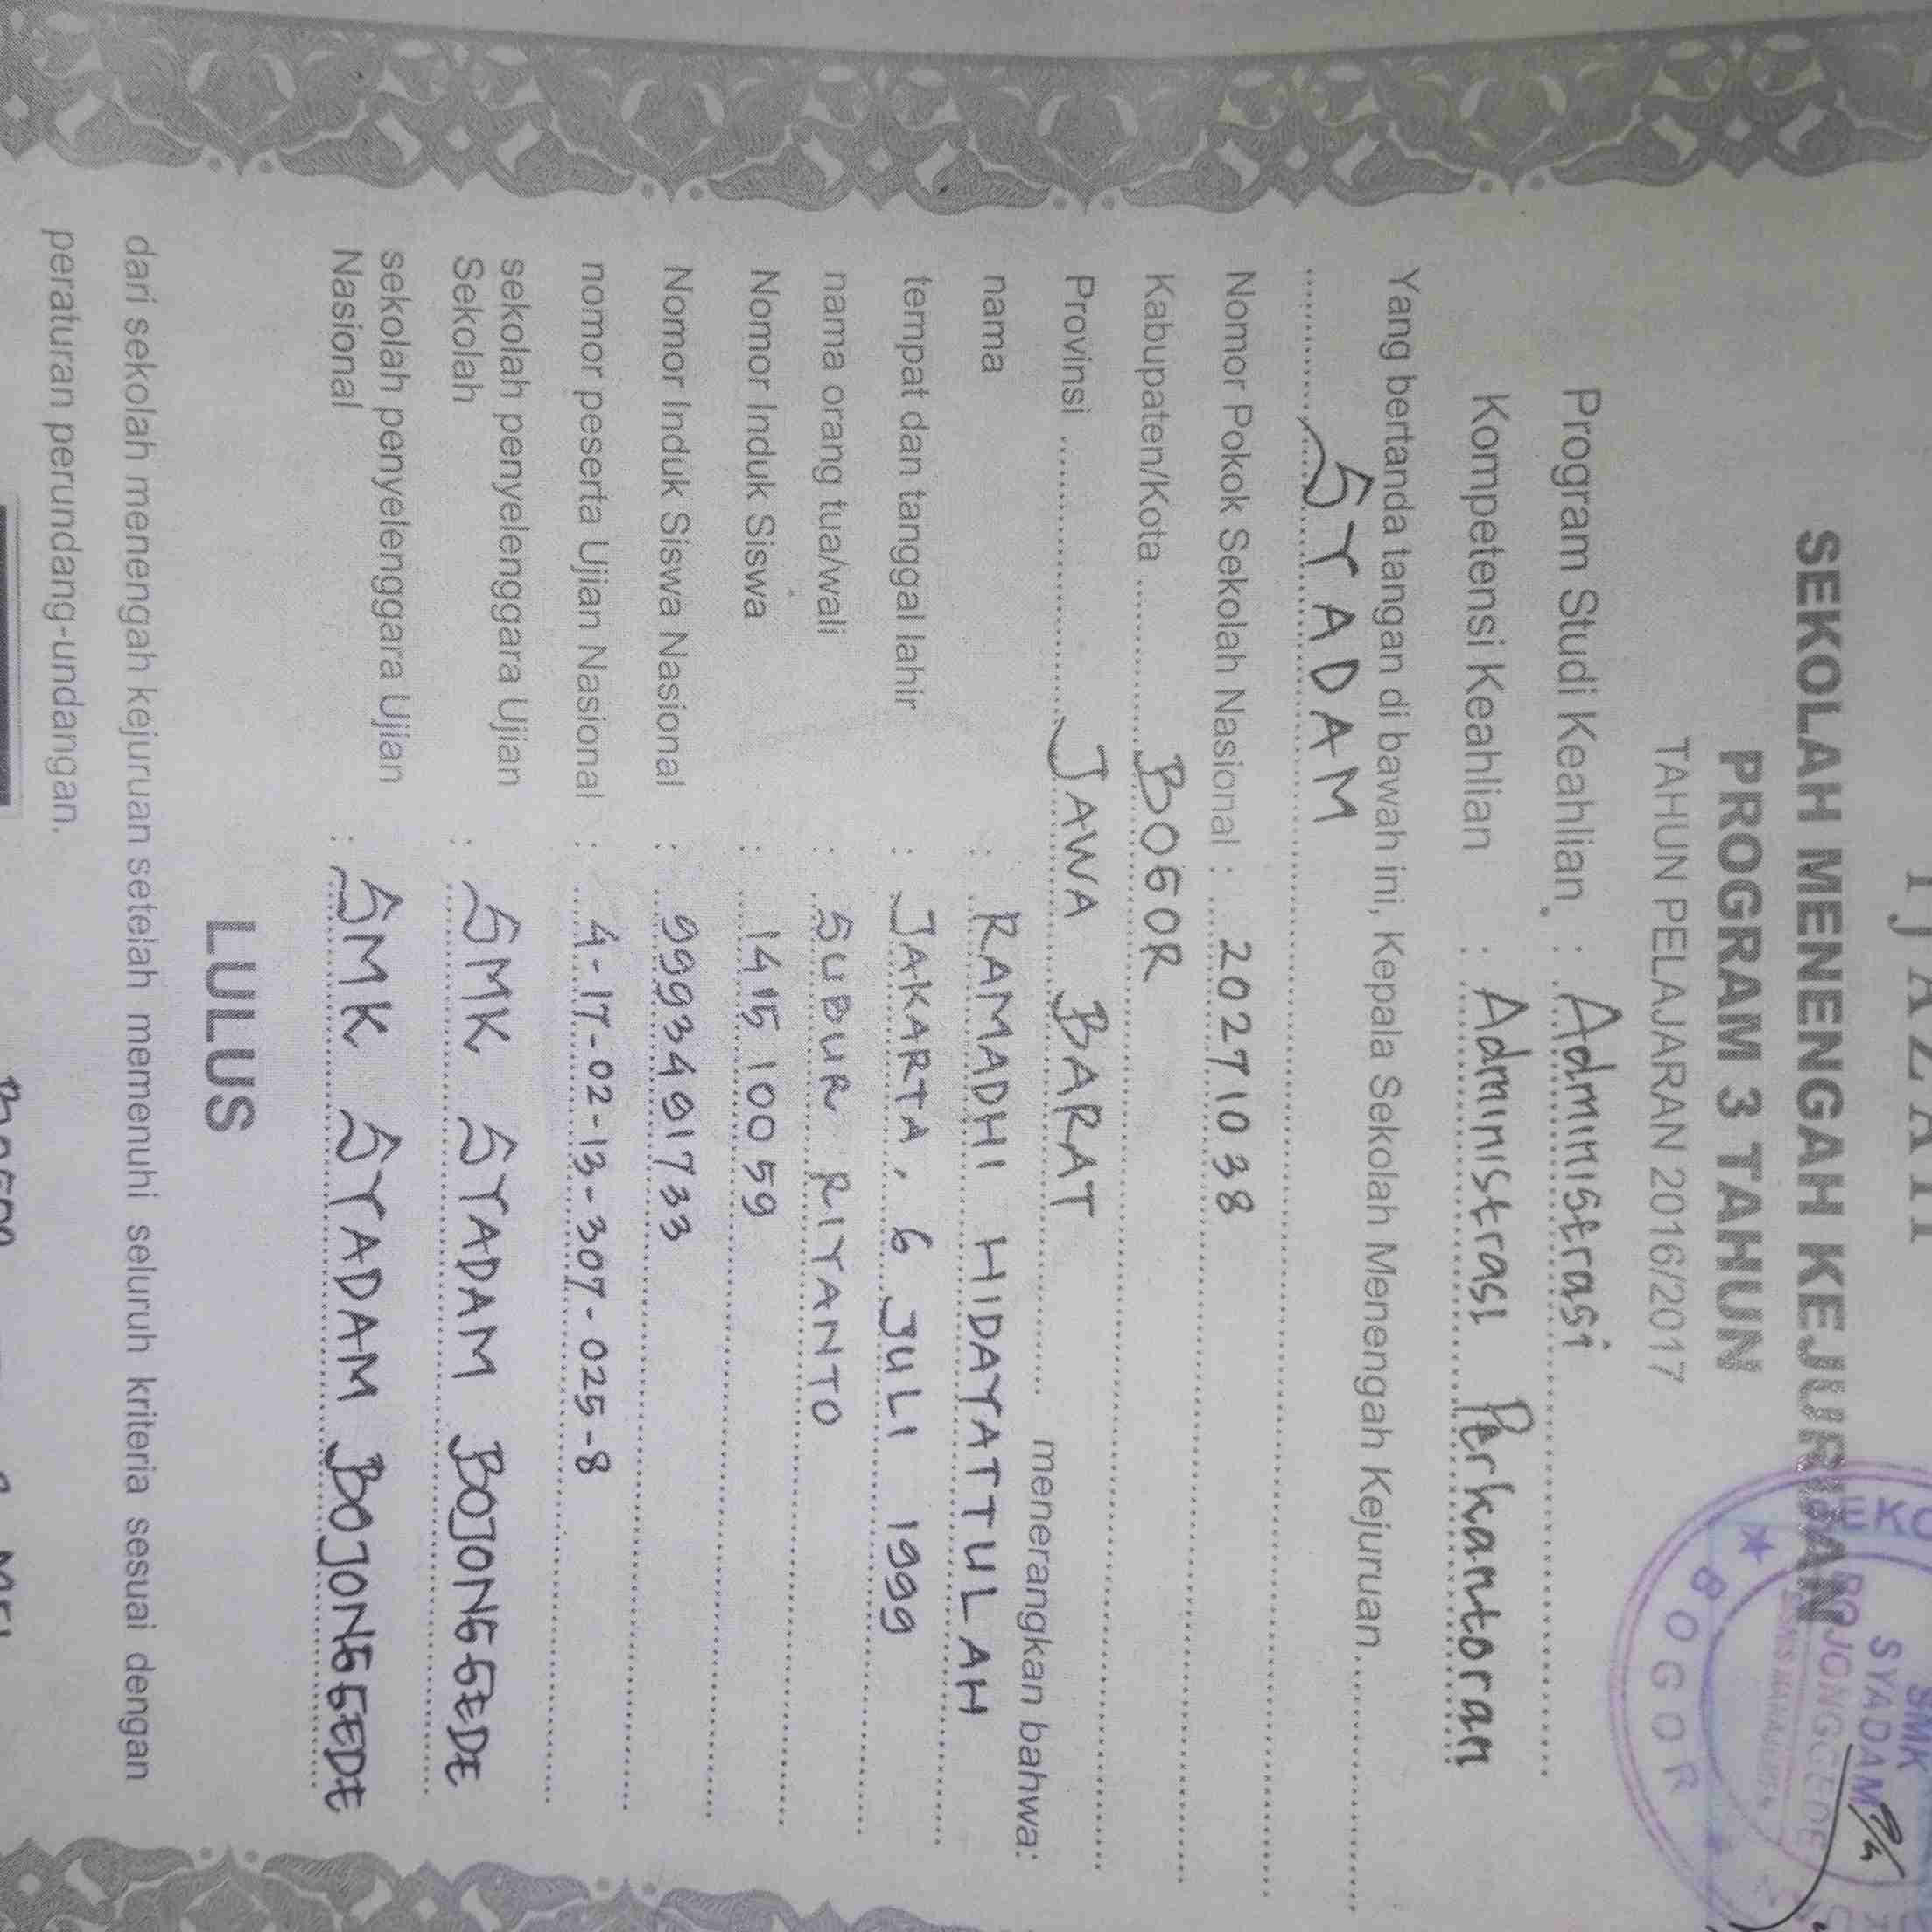 IJAZAH
SEKOLAH MENENGAH KEJURUAN
PROGRAM 3 TAHUN
TAHUN PELAJARAN 2016/2017
Program Studi Keahlian : Administrasi
Kompetensi Keahlian : Administrasi Perkantoran
Yang bertanda tangan di bawah ini, Kepala Sekolah Menengah Kejuruan
SYADAM
Nomor Pokok Sekolah Nasional : 20271038
Kabupaten/Kota BOGOR
Provinsi JAWA BARAT menerangkan bahwa:
nama : RAMADHI HIDAYATTULAH
tempat dan tanggal lahir : JAKARTA, 6 JULI 1999
nama orang tua/wali : SUBUR RIYANTO
Nomor Induk Siswa : 141510059
Nomor Induk Siswa Nasional : 9993491733
nomor peserta Ujian Nasional : 4-17-02-13-307-025-8
sekolah penyelenggara Ujian
Sekolah : SMK SYADAM BOJONGGEDE
sekolah penyelenggara Ujian
Nasional : SMK SYADAM BOJONGGEDE
LULUS
dari sekolah menengah kejuruan setelah memenuhi seluruh kriteria sesuai dengan
peraturan perundang-undangan.
SMK
SYADAM
BOJONGGEDE
BOGOR